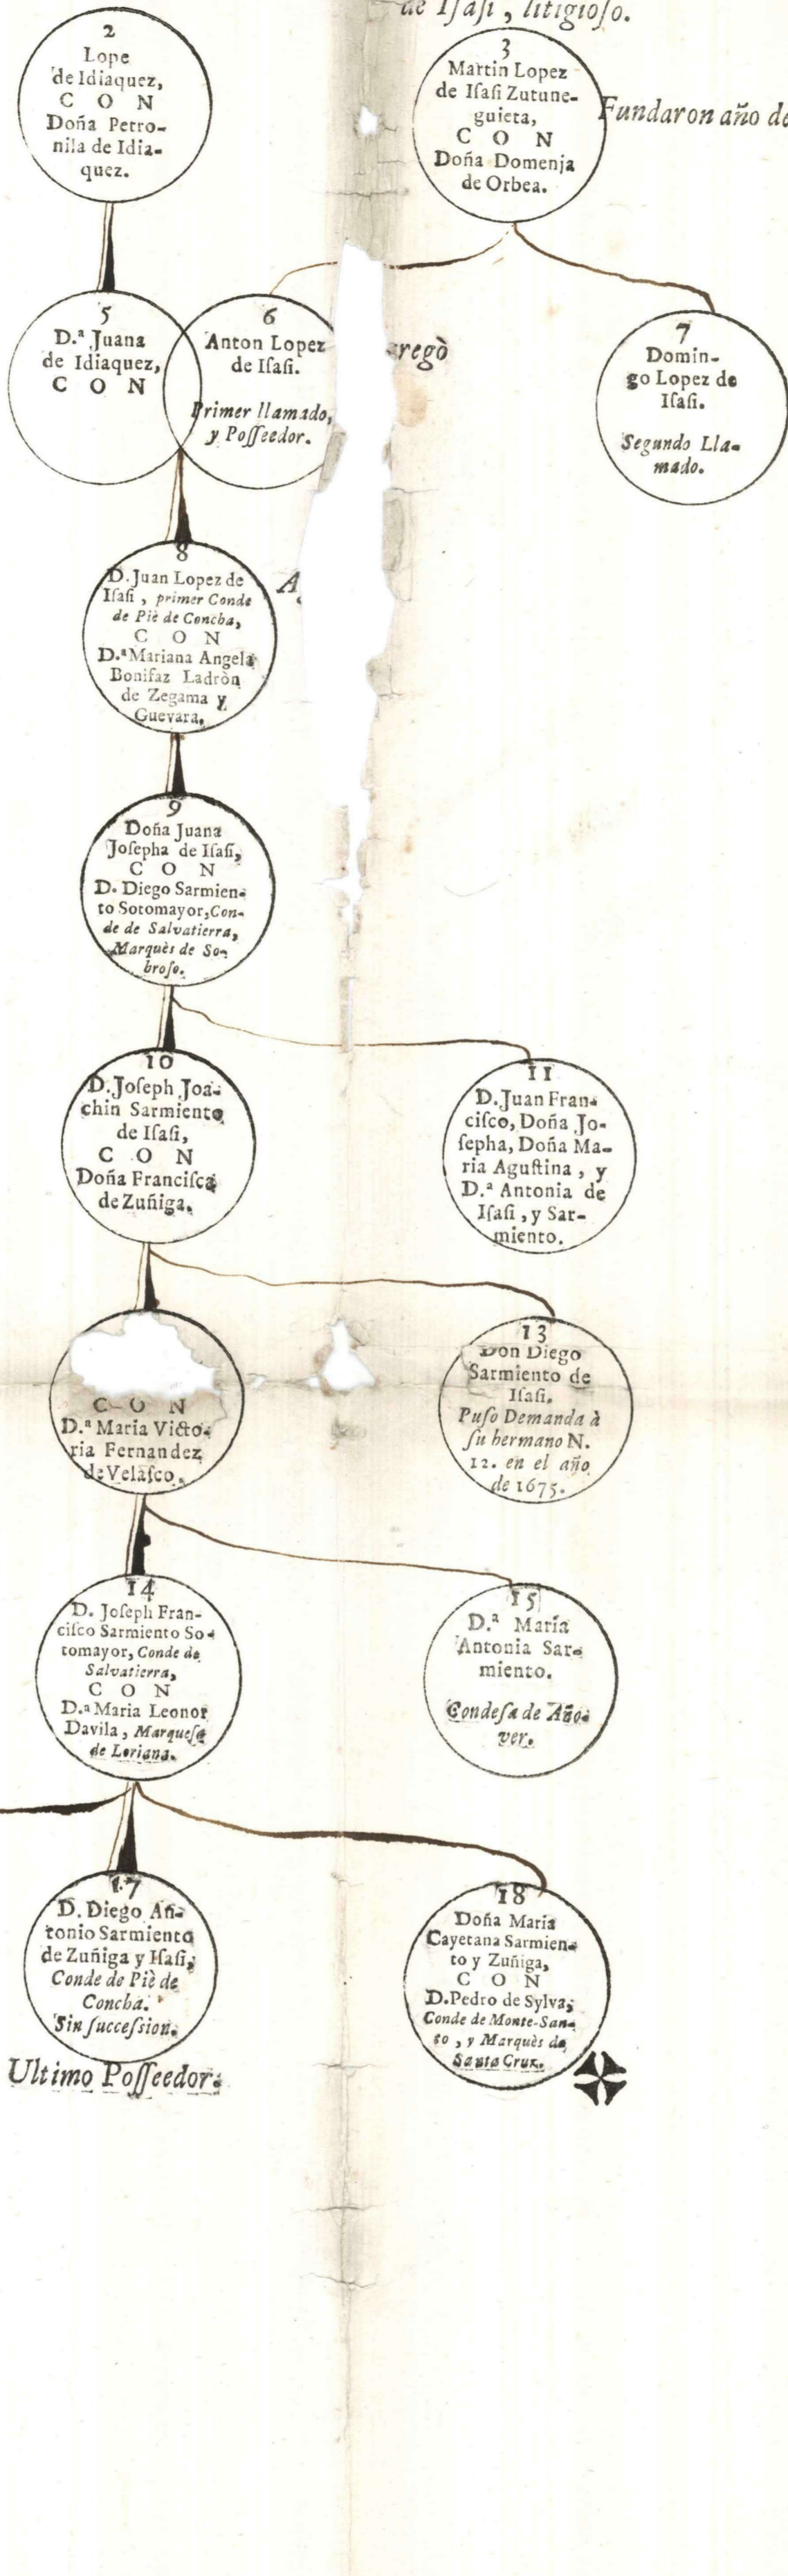 de Iſaſi, litigioſo.
2
Lope
de Idiaquez,
C O N
Doña Petro-
nila de Idia-
quez.
3
Martin Lopez
de Iſaſi Zutune-
guieta,
C O N
Doña Domenja
de Orbea.
Fundaron año de
5
D.ª Juana
de Idiaquez,
C O N
6
Anton Lopez
de Iſaſi.
Primer llamado,
y Poſſeedor.
regò
7
Domin-
go Lopez de
Iſaſi.
Segundo Lla-
mado.
8
D. Juan Lopez de
Iſaſi, primer Conde
de Piè de Concha,
C O N
D.ª Mariana Angela
Bonifaz Ladròn
de Zegama y
Guevara.
A
9
Doña Juana
Joſepha de Iſaſi,
C O N
D. Diego Sarmien-
to Sotomayor, Con-
de de Salvatierra,
Marquès de So-
broſo.
10
D. Joſeph Joa-
chin Sarmiento
de Iſaſi,
C O N
Doña Franciſca
de Zuñiga.
11
D. Juan Fran-
ciſco, Doña Jo-
ſepha, Doña Ma-
ria Aguſtina, y
D.ª Antonia de
Iſaſi, y Sar-
miento.
C O N
D.ª Maria Victo-
ria Fernandez
de Velaſco.
13
Don Diego
Sarmiento de
Iſaſi.
Puſo Demanda à
ſu hermano N.
12. en el año
de 1675.
14
D. Joſeph Fran-
ciſco Sarmiento So-
tomayor, Conde de
Salvatierra,
C O N
D.ª Maria Leonor
Davila, Marqueſa
de Loriana.
15
D.ª María
Antonia Sar-
miento.
Condeſa de Año-
ver.
17
D. Diego An-
tonio Sarmiento
de Zuñiga y Iſaſi,
Conde de Piè de
Concha.
Sin ſucceſsion.
Ultimo Poſſeedor.
18
Doña Maria
Cayetana Sarmien-
to y Zuñiga,
C O N
D. Pedro de Sylva,
Conde de Monte-San-
to, y Marquès de
Santa Cruz.